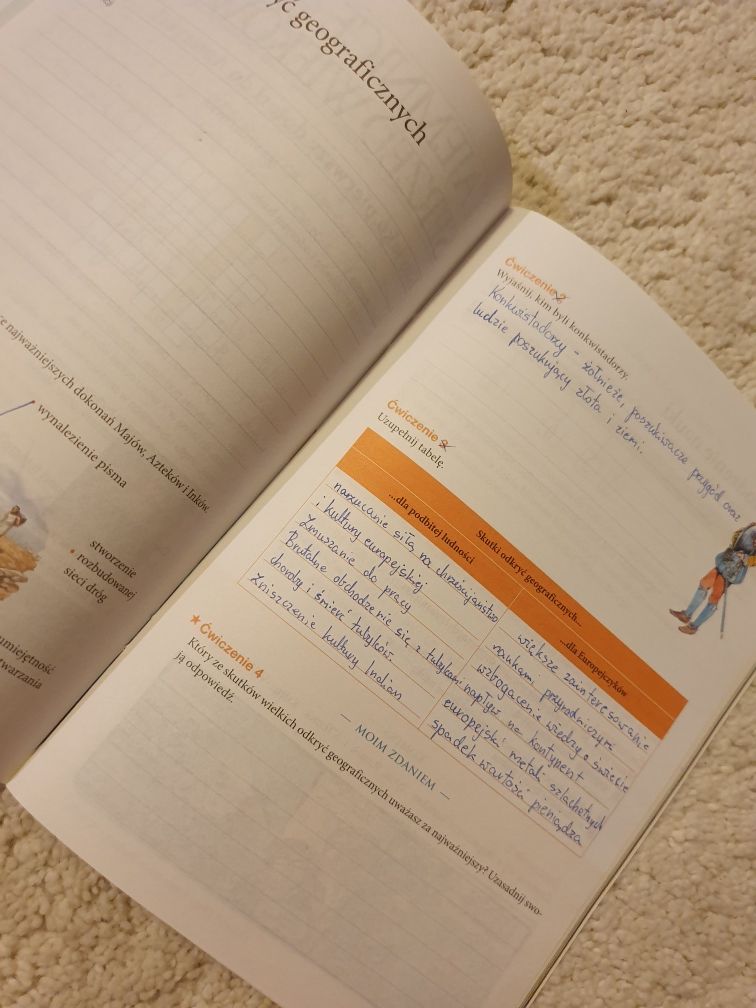 yć geograficznych
ce najważniejszych dokonań Majów, Azteków i Inków.
wynalezienie pisma
stworzenie
• rozbudowanej
sieci dróg
umiejętność
twarzania
Ćwiczenie 2
Wyjaśnij, kim byli konkwistadorzy.
Konkwistadorzy - żołnierze, poszukiwacze przygód oraz
ludzie poszukujący złota i ziemi.
Ćwiczenie 3
Uzupełnij tabelę.
Skutki odkryć geograficznych...
...dla podbitej ludności
...dla Europejczyków
narzucanie siłą na chrześcijaństwo
i kultury europejskiej
Zmuszanie do pracy
Brutalne obchodzenie się z tubylcami
choroby i śmierć tubylców.
Zniszczenie kultury Indian
większe zainteresowanie
naukami przyrodniczym
wzbogacenie wiedzy o świecie
napływ na kontynent
europejski metali szlachetnych
spadek wartości pieniądza
★ Ćwiczenie 4
— MOIM ZDANIEM —
Który ze skutków wielkich odkryć geograficznych uważasz za najważniejszy? Uzasadnij swo-
ją odpowiedź.